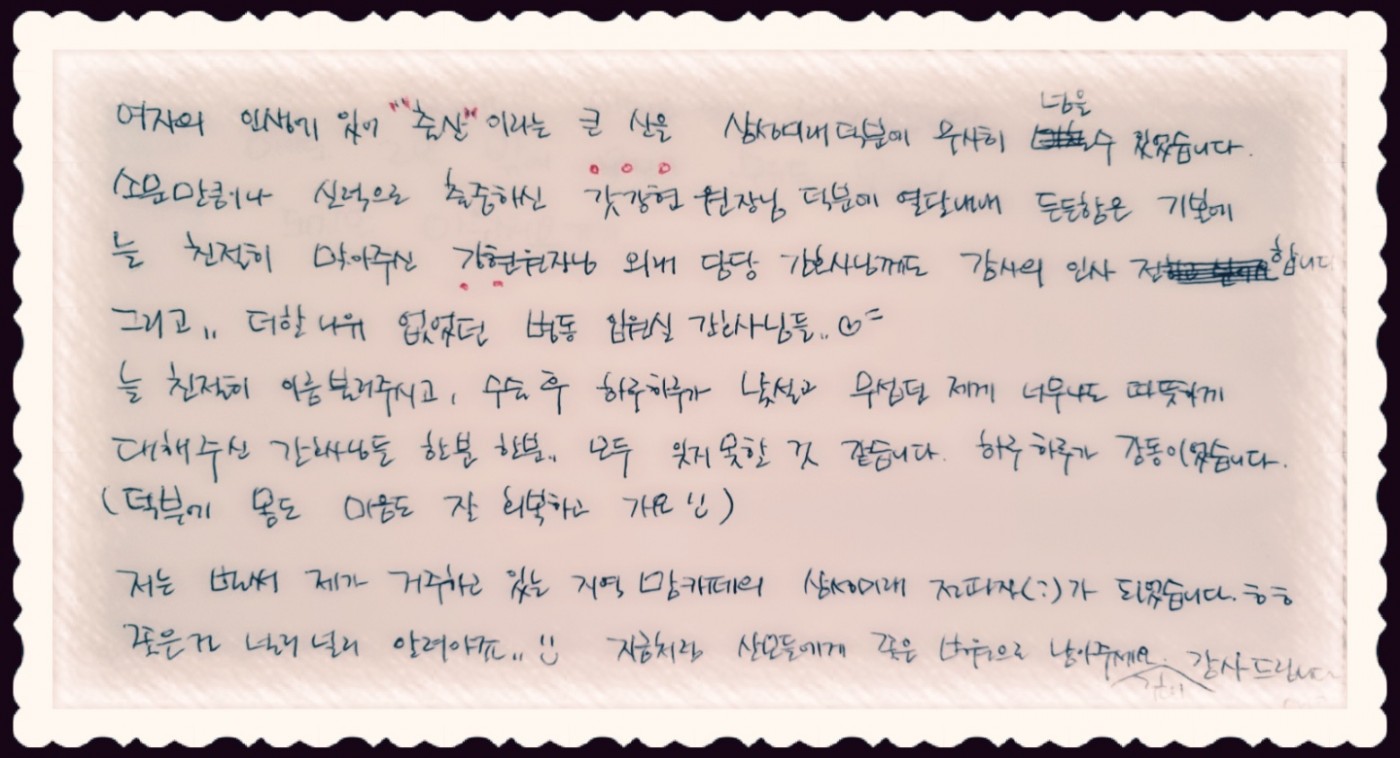 여자의 인생에 있어 "출산"이라는 큰 산을 삼성미래 덕분에 무사히 넘을 수 있었습니다.
소문만큼이나 실력으로 출중하신 갓강현 원장님 덕분에 열달내내 든든함은 기본에
늘 친절히 맞아주신 강현원장님 외래 담당 간호사님께도 감사의 인사 전합니다
그리고,, 더할나위 없었던 병동 입원실 간호사님들..♡=
늘 친절히 이름불러주시고, 수술 후 하루하루가 낯설고 무섭던 제게 너무나도 따뜻하게
대해주신 간호사님들 한분 한분.. 모두 잊지 못할 것 같습니다. 하루하루가 감동이였습니다.
(덕분에 몸도 마음도 잘 회복하고 가요 !!)
저는 벌써 제가 거주하고 있는 지역 맘카페의 삼성미래 전파자(:)가 되었습니다.ㅎㅎ
좋은건 널리널리 알려야죠,, 지금처럼 산모들에게 좋은 병원으로 남아주세요. 감사드립니다